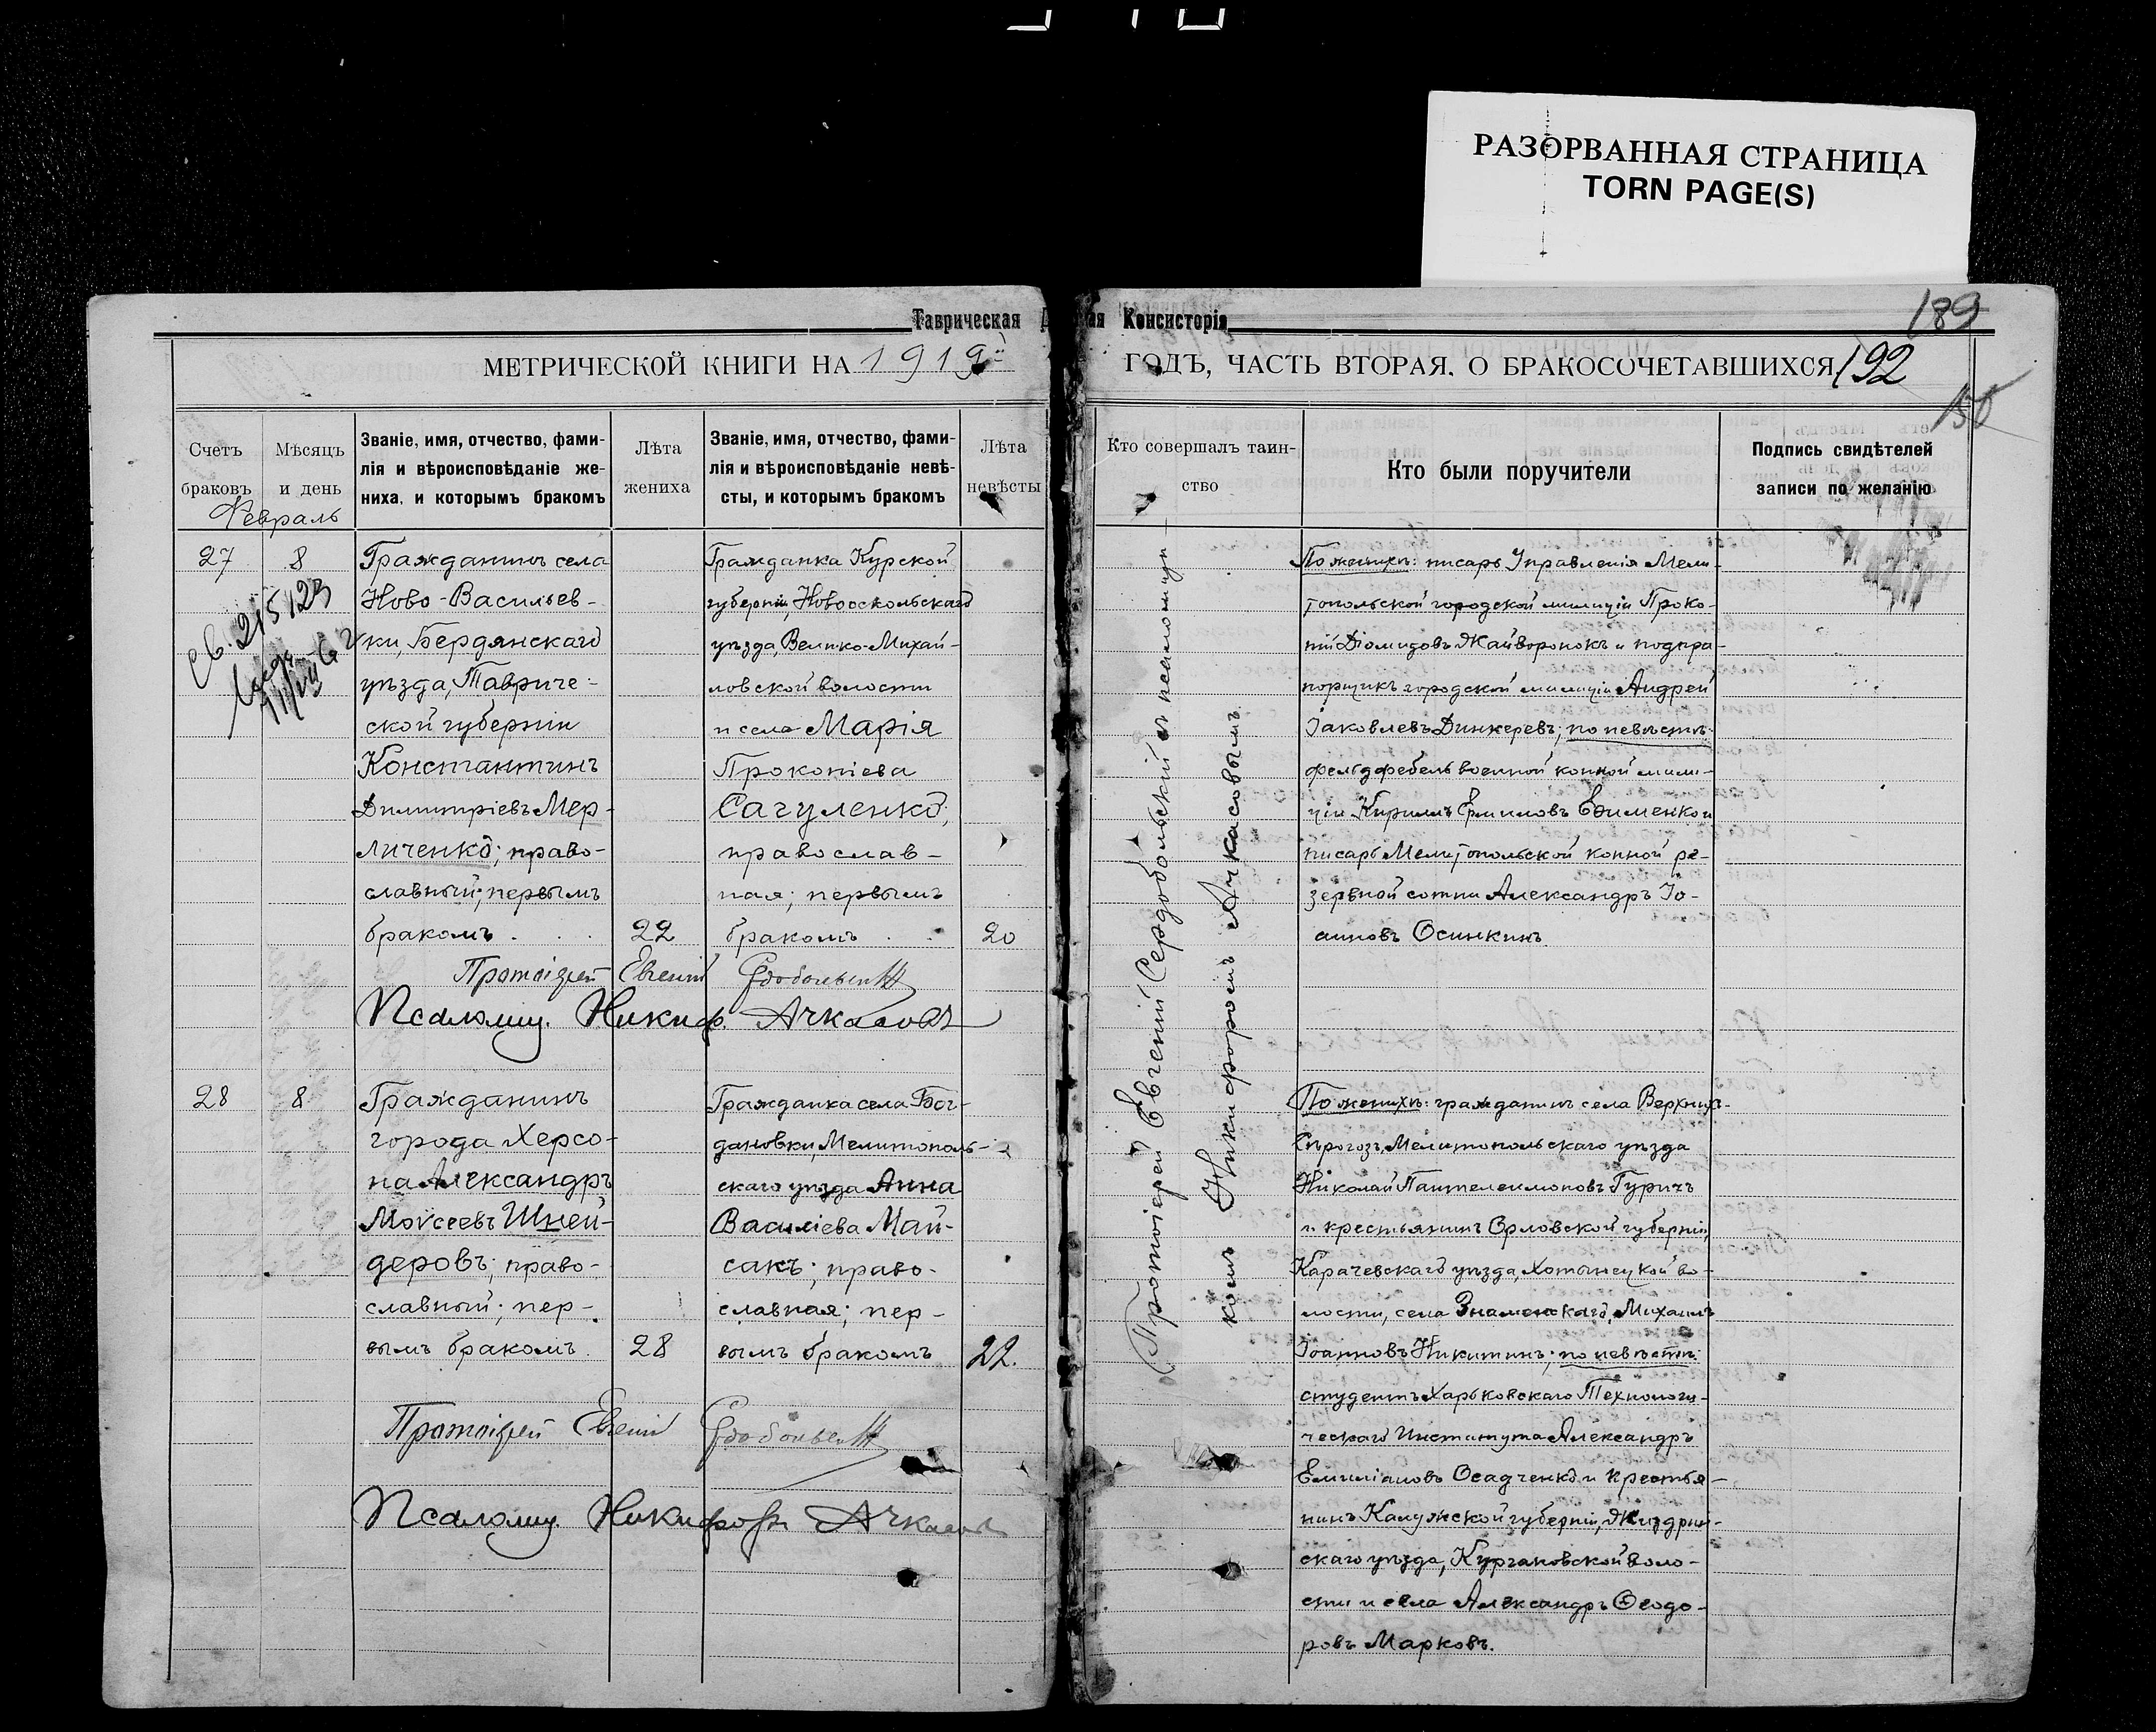 РАЗОРВАННАЯ СТРАНИЦА
TORN PAGE(S)
Таврическая Д ая Консисторія
189
МЕТРИЧЕСКОЙ КНИГИ НА 1919й ГОДЪ, ЧАСТЬ ВТОРАЯ, О БРАКОСОЧЕТАВШИХСЯ
192
150
Счетъ
браковъ
Мѣсяцъ
и день
Званіе, имя, отчество, фами-
лія и вѣроисповѣданіе же-
ниха, и которымъ бракомъ
Лѣта
жениха
Званіе, имя, отчество, фами-
лія и вѣроисповѣданіе невѣ-
сты, и которымъ бракомъ
Лѣта
невѣсты
Кто совершалъ таин-
ство
Кто были поручители
Подпись свидѣтелей
записи по желанію
Февраль
27
8
Св. 215/23
Гражданинъ села
Ново-Васильев-
ки, Бердянскаго
уѣзда, Тавриче-
ской губерніи
Константинъ
Димитріевъ Мер-
личенко; право-
славный; первымъ
бракомъ . . .
22
Гражданка Курской
губерніи, Новооскольскаго
уѣзда, Велико-Михай-
ловской волости
и села Марія
Прокопіева
Сагуленко;
православ-
ная; первымъ
бракомъ . .
20
Протоіерей Евгеній Сердобольскій съ псаломщи-
комъ Никифоромъ Ачкасовымъ
По женихѣ: писарь Управленія Мели-
топольской городской милиціи Проко-
пій Діомидовъ Жайворонокъ и подпра-
порщикъ городской милиціи Андрей
Іаковлевъ Динкеревъ; по невѣстѣ:
фельдфебель военной конной мили-
ціи Кириллъ Ермиловъ Ефименко и
писарь Мелитопольской конной ре-
зервной сотни Александръ Іо-
анновъ Осинкинъ
Протоіерей Евгеній Сердобольскій
Псаломщ. Никиф. Ачкасовъ
28
8
Гражданинъ
города Херсо-
на Александръ
Моѵсеевъ Шней-
деровъ; право-
славный; пер-
вымъ бракомъ.
28
Гражданка села Бог-
дановки, Мелитополь-
скаго уѣзда Анна
Василіева Май-
сакъ; право-
славная; пер-
вымъ бракомъ
22.
По женихѣ: гражданинъ села Верхнихъ-
Сѣрогозъ, Мелитопольскаго уѣзда
Николай Пантелеимоновъ Гуричъ
и крестьянинъ Орловской губерніи,
Карачевскаго уѣзда, Хотынецкой во-
лости, села Знаменскаго, Михаилъ
Іоанновъ Никитинъ; по невѣстѣ:
студентъ Харьковскаго Технологи-
ческаго Института Александръ
Емиліановъ Осадченко и крестья-
нинъ Калужской губерніи, Жиздрин-
скаго уѣзда, Курганской воло-
сти и села Александръ Ѳеодо-
ровъ Марковъ.
Протоіерей Евгеній Сердобольскій
Псаломщ. Никифоръ Ачкасовъ